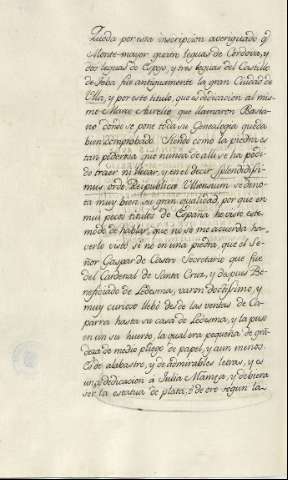 Queda por esta inscripcion averiguado q̃
Monte-mayor quatro leguas de Cordova, y
dos leguas de Espejo, y tres leguas del Castillo
de Joba fue antiguamente la gran Ciudad de
Ulia, y por este titulo, que es dedicacion al mis-
mo Marco Aurelio que llamaron Basia-
no donde se pone toda su Genealogia queda
bien comprobado. Siendo como la piedra es
tan poderosa que nunca de alli se ha podi-
do traer ni llevar, y en el decir splendidissi-
mus ordo Reipublicæ Uliensium se deno-
ta muy bien su gran qualidad, por que en
mui pocos titulos de España he visto este
modo de hablar, que no sé me acuerda ha-
verle visto si no en una piedra, que el Se-
ñor Gaspar de Castro Secretario que fue
del Cardenal de Santa Cruz, y despues Be-
neficiado de Ledesma, varon doctissimo, y
muy curioso llebó desde las ventas de Ca-
parra hasta su casa de Ledesma, y la puso
en un su huerto, la qual era pequeña de gran-
deza de medio pliego de papel, y aun menos.
Es de alabastro, y de admirables letras, y es
una dedicacion a Julia Mamea, y debiera
ser la estatua de plata, ó de oro segun la